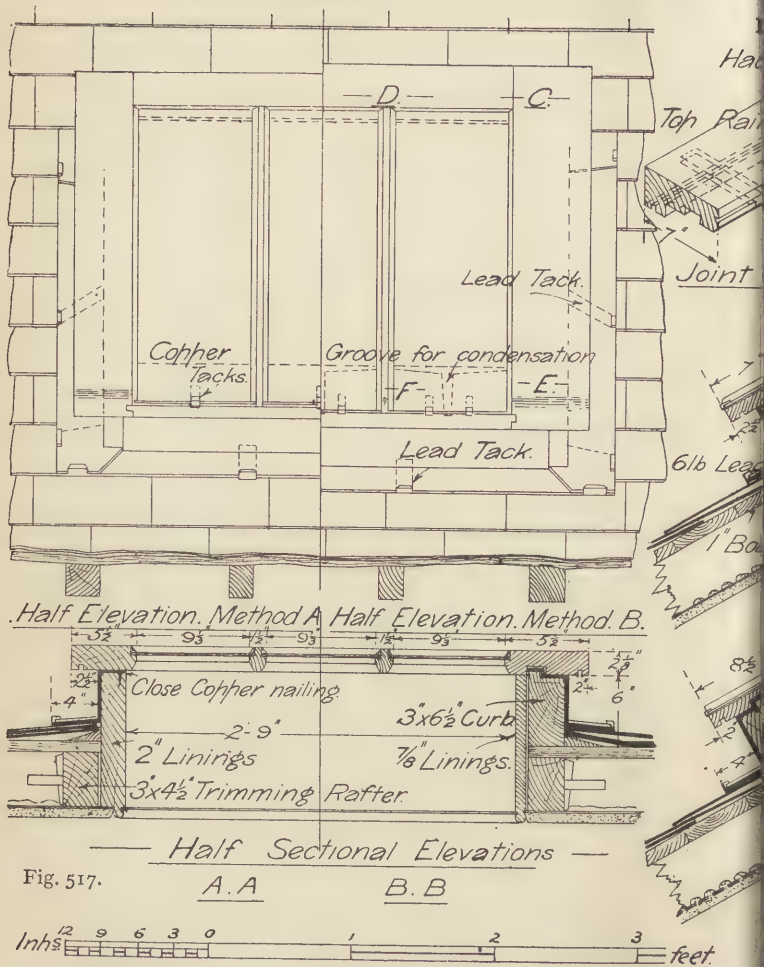 D.
C.
Top Rail
Joint
Lead Tack.
Copper
Tacks.
Groove for condensation
F
E.
7"
7"
2½"
Lead Tack.
6lb Lead
1" Bo
Half Elevation. Method A Half Elevation. Method. B.
5½" 9⅓" 1½" 9⅓" 1½" 9⅓" 5½"
2½"
4"
Close Copper nailing.
2'-9"
2" Linings
3"x4½" Trimming Rafter.
3"x6½" Curb
⅞" Linings.
2"
6"
8½
2"
4"
Half Sectional Elevations
Fig. 517.
A.A B.B
Inhs 12 9 6 3 0 1 2 3 feet.